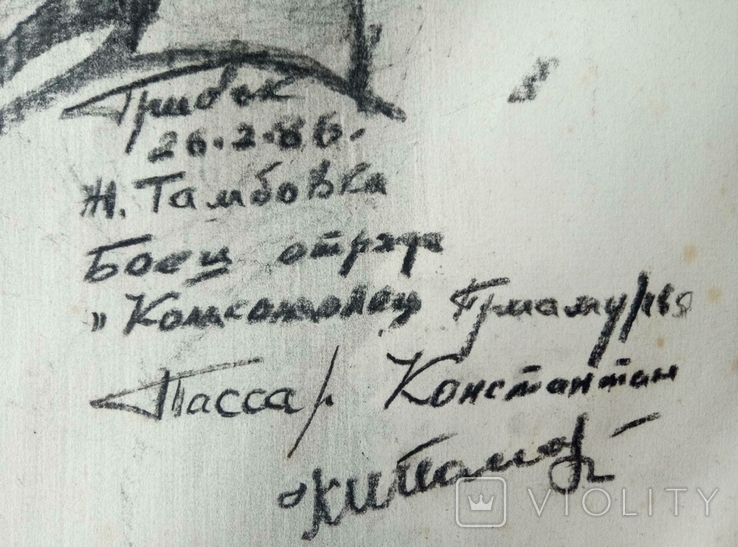 Грибок
26.2.86.
Н. Тамбовка
Боец отряда
„Комсомолец Приамурья
Пассар Константин
VIOLITY